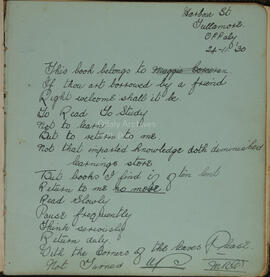 Harbour St
Tullamore.
Offaly
24-11-30
This book belongs to Maggie Corcoran
If thou art borrowed by a friend
Right welcome shall it be
To Read To Study
Not to learn
But to return to me
Not that imparted knowledge doth diminished
learnings store
But books I find if often lent
Return to me no more.
Read Slowly
Pause frequently
Think seriously
Return duly
With the corners of the leaves
Not Turned up
Please.